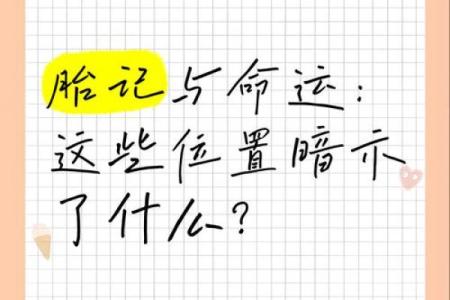 胎记与命运:
这些位置暗示
了什么?